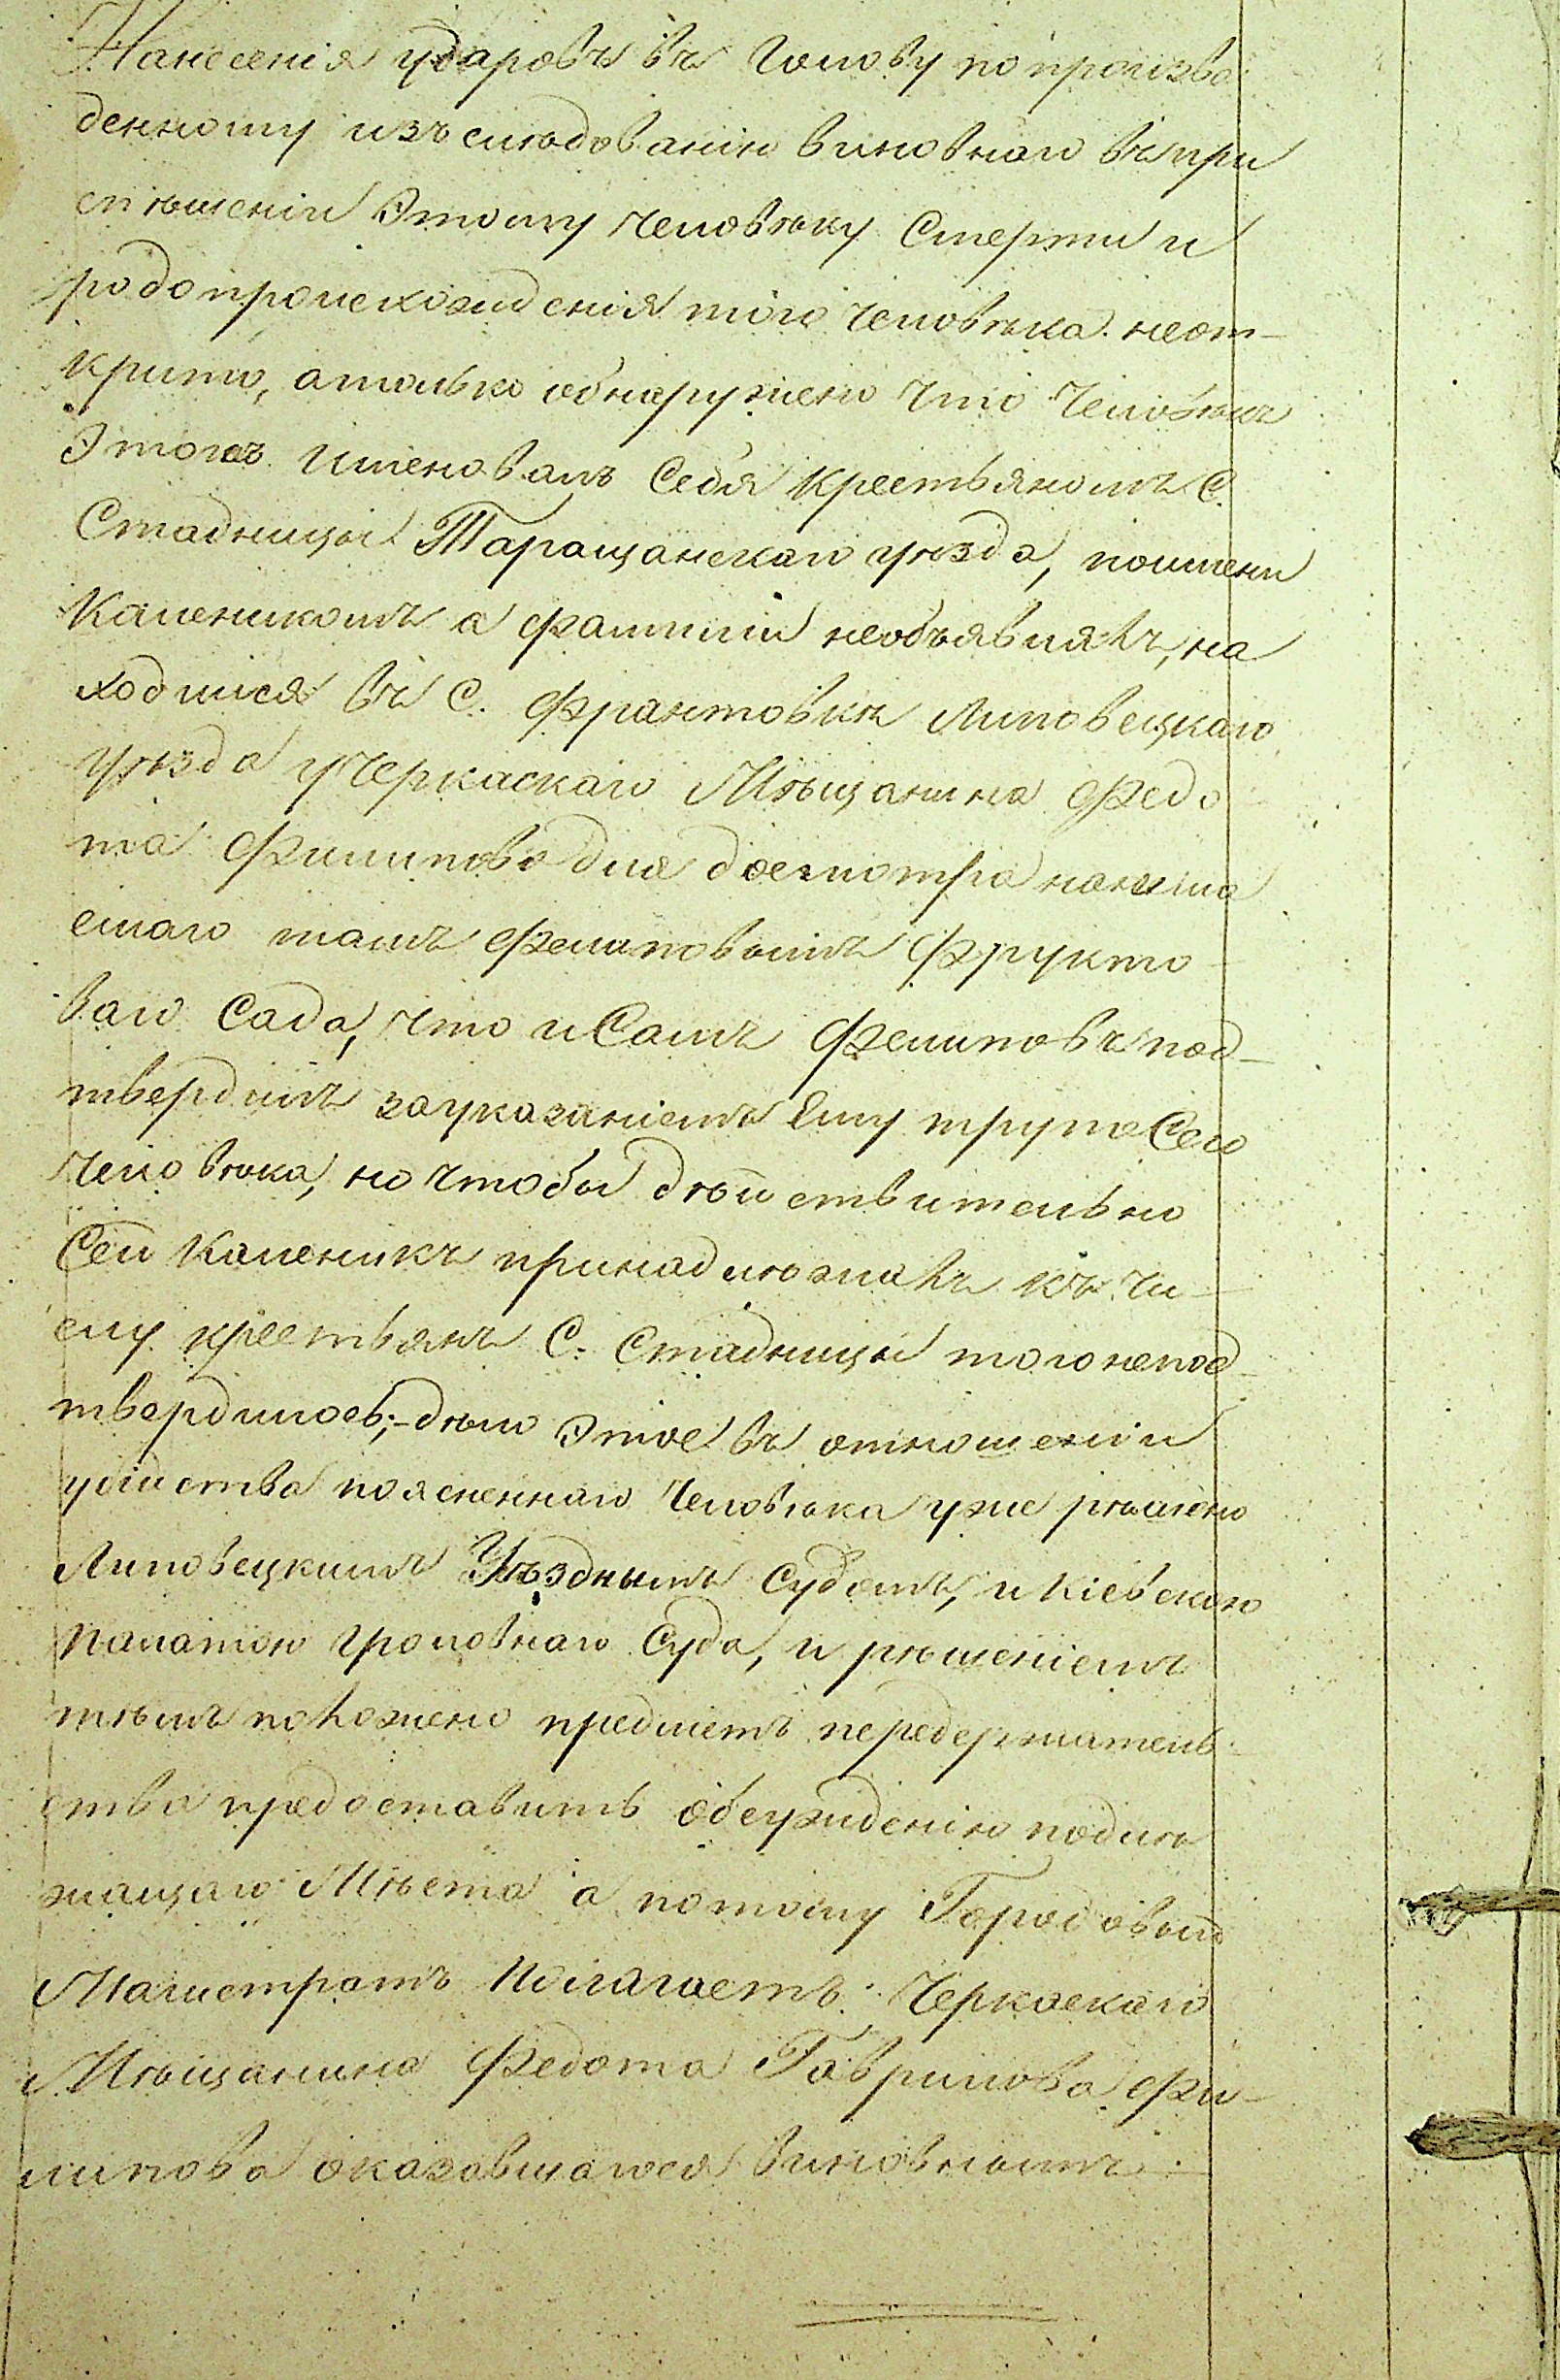 Нанесенія ударовъ въ голову по произве-
денному изъслѣдованію виновнаго въ при
спѣшеніи Этому человѣку Смерти и
родопроисхожденія того человѣка неот-
крито, атолько обнаружено что Человѣкъ
Этотъ именовалъ Себя Крестьяномъ С.
Стадницы Таращанскаго уѣзда, поимени
Каленикомъ а фамиліи необъявлялъ, на
ходился въ С. Франтовкѣ Липовецкаго
уѣзда у Черкаскаго Мѣщанина Федо
та Филипова для досмотра нанима
емаго тамъ Фелиповымъ Фрукто-
ваго Сада, что и Самъ Фелиповъ под-
твердилъ зауказаніемъ Ему трупа Сего
человѣка, но чтобы дѣйствительно
Сей Каленикъ принадлежалъ къ чи-
слу крестьянъ С. Стадницы того непод-
твердилось;- дѣло Этое въ отношеніи
убійства поясненнаго Человѣка уже рѣшено
Липовецкимъ Уѣзднымъ Судомъ, и Кіевскою
палатою уголовнаго Суда, и рѣшеніемъ
тѣмъ положено предметъ передержатель-
ства предоставить обсужденію подле
жащаго Мѣста а потому Городовый
Магистратъ Полагаетъ: Черкаскаго
Мѣщанина Федота Гаврилова Фи-
липова оказавшагося виновнымъ